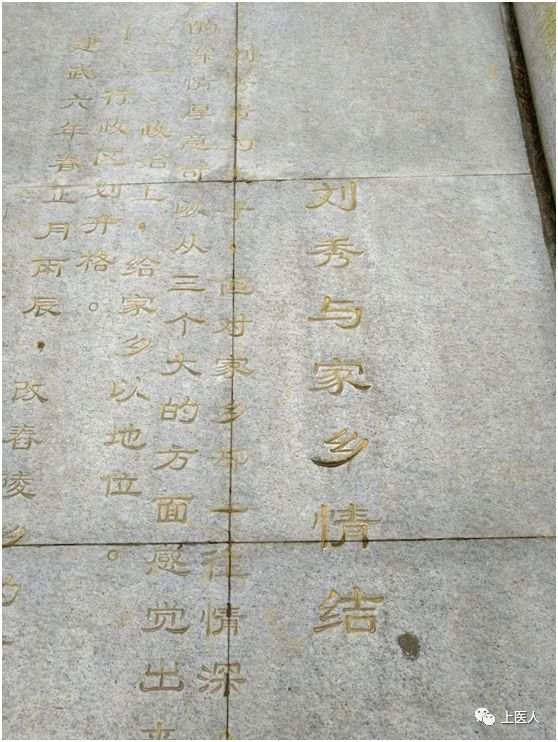 刘秀与家乡情结
刘秀贵为子，但对家乡却一往情深
的深情厚意可以从三个大的方面感觉出来
一、政治上，给家乡以地位。
1、行政区划升格。
建武六年春正月丙辰，改舂陵乡
上医人